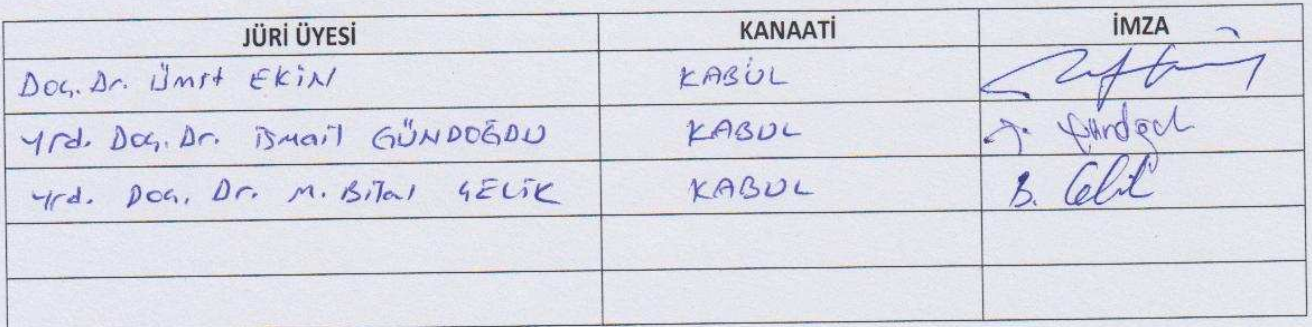 JÜRİ ÜYESİ KANAATİ İMZA
Doç. Dr. Ümit EKİN KABUL
Yrd. Doç. Dr. İsmail GÜNDOĞDU KABUL
Yrd. Doç. Dr. M. Bilal ÇELİK KABUL B. Çelik